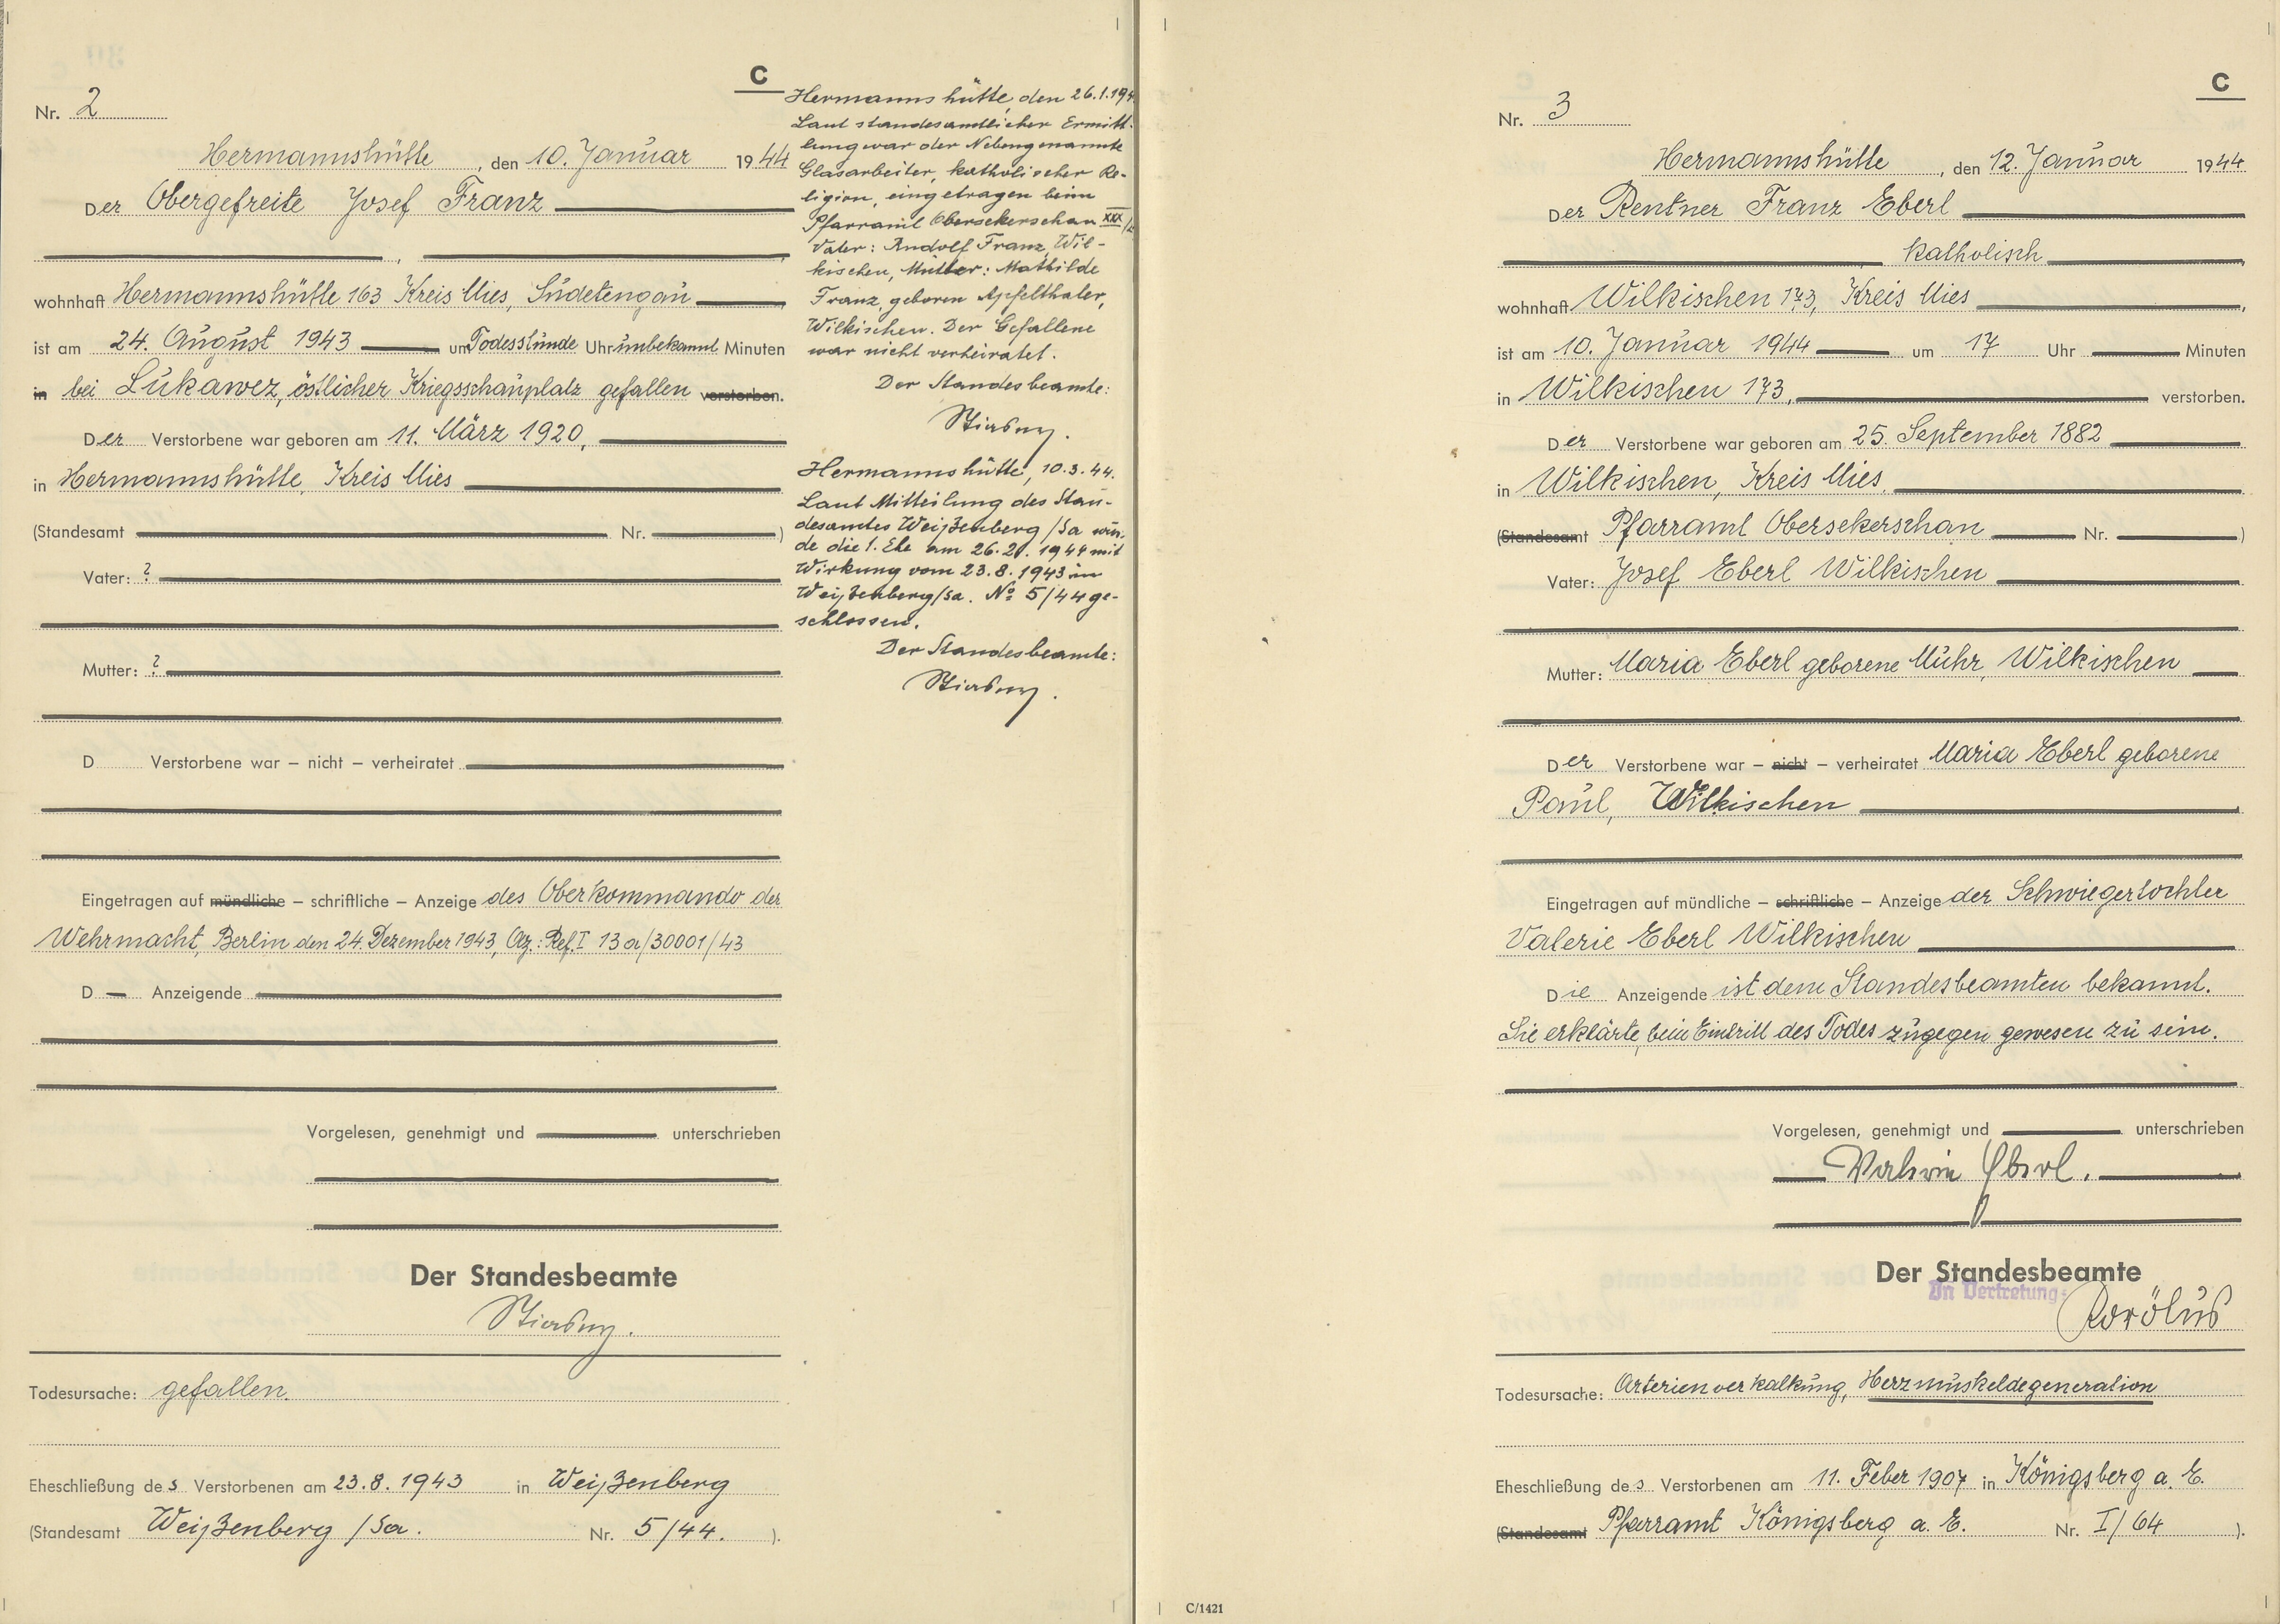 C
Nr. 2
Hermannshütte, den 10. Januar 1944
Der Obergefreite Josef Franz
,
wohnhaft Hermannshütte 163 Kreis Mies, Sudetengau
ist am 24. August 1943 um Todesstunde Uhr unbekannt Minuten
in bei Lukawez, östlicher Kriegsschauplatz gefallen verstorben.
Der Verstorbene war geboren am 11. März 1920,
in Hermannshütte, Kreis Mies
(Standesamt Nr. )
Vater: ?
Mutter: ?
D Verstorbene war – nicht – verheiratet
Eingetragen auf mündliche – schriftliche – Anzeige des Oberkommando der
Wehrmacht, Berlin den 24. Dezember 1943, Az.: Ref. I 13a/30001/43
D Anzeigende
Vorgelesen, genehmigt und unterschrieben
Der Standesbeamte
Todesursache: gefallen.
Eheschließung des Verstorbenen am 23.8.1943 in Weißenberg
(Standesamt Weißenberg /Sa. Nr. 5/44. ).
Hermannshütte, den 26.1.194
Laut standesamtlicher Ermitt-
lung war der Nebengenannte
Glasarbeiter, katholischer Re-
ligion, eingetragen beim
Pfarramt Obersekerschan XXX/
Vater: Rudolf Franz, Wil-
kischen, Mutter: Mathilde
Franz, geboren Apfelthaler,
Wilkischen. Der Gefallene
war nicht verheiratet.
Der Standesbeamte:
Hermannshütte, 10.3.44.
Laut Mitteilung des Stan-
desamtes Weißenberg/Sa wur-
de die 1. Ehe am 1944 mit
Wirkung vom 23.8.1943 in
Weißenberg/Sa. No 5/44 ge-
schlossen.
Der Standesbeamte:
C
Nr. 3
Hermannshütte, den 12. Januar 1944
Der Rentner Franz Eberl
katholisch
wohnhaft Wilkischen 173, Kreis Mies
ist am 10. Januar 1944 um 17 Uhr Minuten
in Wilkischen 173, verstorben.
Der Verstorbene war geboren am 25. September 1882
in Wilkischen, Kreis Mies,
(Standesamt Pfarramt Obersekerschan Nr. )
Vater: Josef Eberl Wilkischen
Mutter: Maria Eberl geborene Muhr, Wilkischen
Der Verstorbene war – nicht – verheiratet Maria Eberl geborene
Paul, Wilkischen
Eingetragen auf mündliche – schriftliche – Anzeige der Schwiegertochter
Valerie Eberl Wilkischen
Die Anzeigende ist dem Standesbeamten bekannt.
Sie erklärte, beim Eintritt des Todes zugegen gewesen zu sein.
Vorgelesen, genehmigt und unterschrieben
Valerie Eberl.
Der Standesbeamte
In Vertretung:
Todesursache: Arterienverkalkung, Herzmuskeldegeneration
Eheschließung des Verstorbenen am 11. Feber 1907 in Königsberg a. E.
(Standesamt Pfarramt Königsberg a. E. Nr. I/64 ).
C/1421